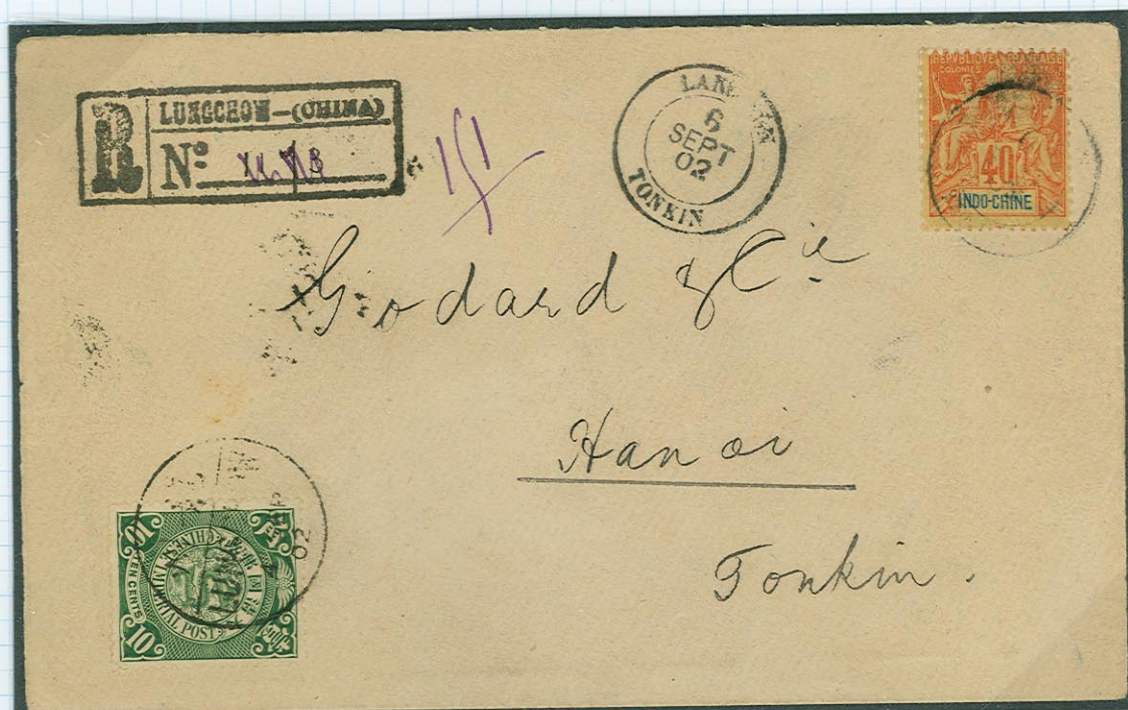 R
LUNGCHOW-(CHINA)
Nº
6
SEPT
02
TONKIN
REPVBLIQVE FRANÇAISE
COLONIES
40
INDO-CHINE
Godard & Cie
Hanoi
Tonkin.
SEP
02
10
CHINESE IMPERIAL POST
TEN CENTS
10